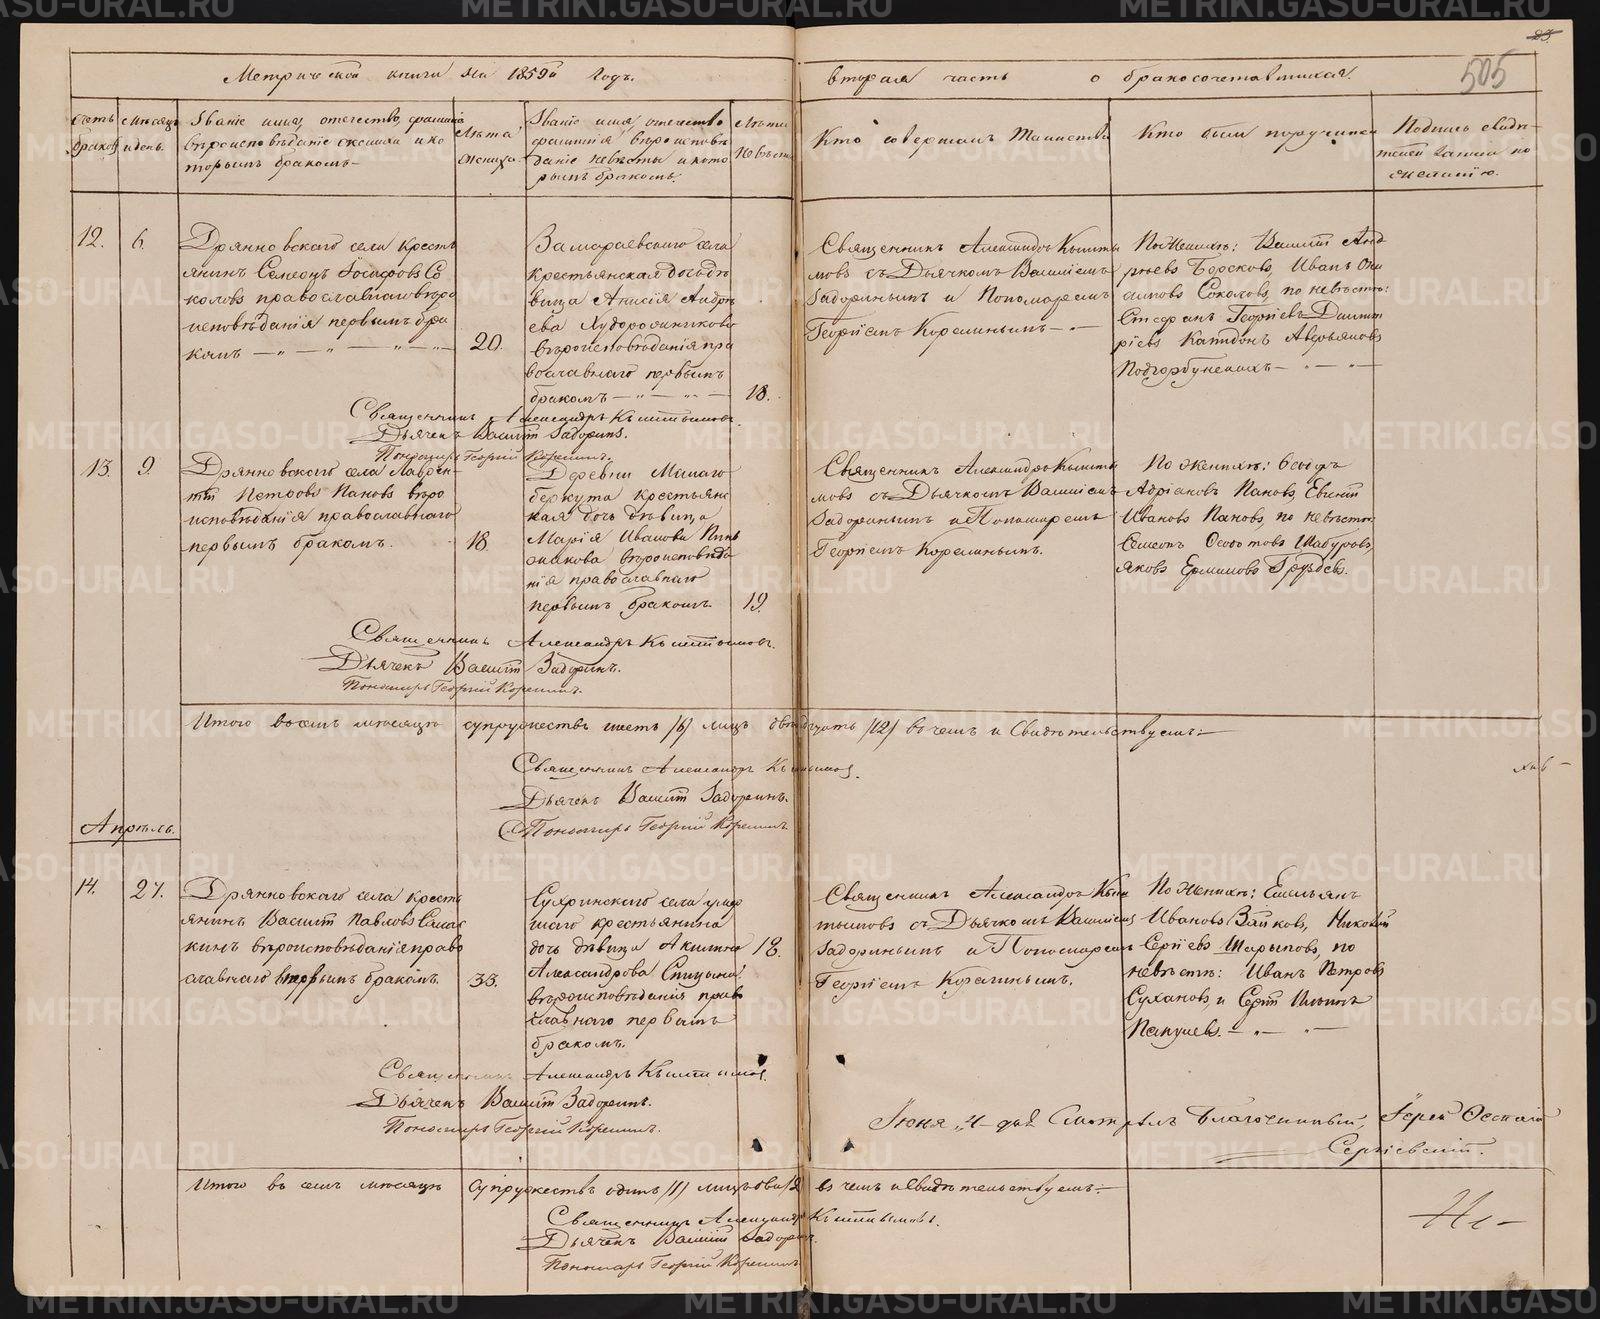 Метрической книги на 1859й годъ.
вторая часть о бракосочетавшихся.
505
Счетъ браков
Мѣсяцъ и день.
Званіе имя, отечество, фамилія
вѣроисповѣданіе жениха и ко
торымъ бракомъ
Лѣта
жениха
Званіе имя отечество
фамилія вѣроисповѣ
даніе невѣсты и кото
рымъ бракомъ.
Лѣта
невѣсты
Кто совершалъ Таинство
Кто были поручители
Подпись свидѣ-
телей записи по
желанію.
12.
6.
Дрянновскаго села кресть
янинъ Семеонъ Іосифовъ Со
коловъ православнаго вѣро
исповѣданія первымъ бра
комъ
20.
Замараевскаго села
крестьянская дочь дѣ
вица Анисія Андрѣ
ева Худорожникова
вѣроисповѣданія пра
вославнаго первымъ
бракомъ
18.
Священникъ Александръ Кышты
мовъ съ Дьячкомъ Василіемъ
Задоринымъ и Пономаремъ
Георгіемъ Корелинымъ
По женихѣ: Василій Анд
рѣевъ Борсковъ, Иванъ
Соколовъ, по невѣстѣ:
Стефанъ Георгіевъ Дмит
ріевъ Капидонъ Аверьяновъ
Подгорбунскихъ
Священникъ Александръ Кыштымовъ.
Дьячекъ Василій Задоринъ.
Пономарь Георгій Корелинъ.
13.
9.
Дрянновскаго села Лаврен-
тій Петровъ Пановъ вѣро
исповѣданія православнаго
первымъ бракомъ.
18
Деревни Малаго
беркута крестьянс
кая дочь дѣвица
Марія Иванова
вѣроисповѣда
нія православнаго
первымъ бракомъ
19.
Священникъ Александръ Кышты
мовъ съ Дьячкомъ Василіемъ
Задоринымъ и Пономаремъ
Георгіемъ Корелинымъ.
По женихѣ: Өеодоръ
Адріановъ Пановъ, Евгеній
Ивановъ Пановъ, по невѣстѣ:
Семеонъ Өедотовъ Шабуровъ,
Яковъ Ермиловъ Груздевъ.
Священникъ Александръ Кыштымовъ.
Дьячекъ Василій Задоринъ.
Пономарь Георгій Корелинъ.
Итого въ семъ мѣсяцѣ супружествъ шесть /6/ лицъ двенадцать /12/ въ чемъ и Свидѣтельствуемъ:
Священникъ Александръ Кыштымовъ.
Дьячекъ Василій Задоринъ.
Пономарь Георгій Корелинъ
Апрѣль.
14.
27.
Дрянновскаго села кресть
янинъ Василій Павловъ
вѣроисповѣданія право
славнаго вторымъ бракомъ.
33.
Сухринскаго села умер
шаго крестьянина
дочь дѣвица Акилина
Александрова Спицына
вѣроисповѣданія право
славнаго первымъ
бракомъ.
18.
Священникъ Александръ Кыш
тымовъ съ Дьячкомъ Василіемъ
Задоринымъ и Пономаремъ
Георгіемъ Корелинымъ.
По женихѣ: Емельянъ
Ивановъ Зайковъ, Николай
Сергіевъ Шарыповъ, по
невѣстѣ: Иванъ Петровъ
Сухановъ и Сергій Ильинъ
Папулевъ.
Священникъ Александръ Кыштымовъ.
Дьячекъ Василій Задоринъ.
Пономарь Георгій Корелинъ.
Іюня 4 дня Смотрелъ Благочинный, Іерей
Сергіевскій.
Итого въ семъ мѣсяцѣ супружествъ одинъ /1/ лицъ два /2/ въ чемъ и Свидѣтельствуемъ:
Священникъ Александръ Кыштымовъ.
Дьячекъ Василій Задоринъ.
Пономарь Георгій Корелинъ
METRIKI.GASO-URAL.RU